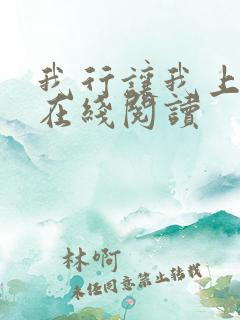 我行讓我上
在綫閱讀
林啊
未经同意禁止转载